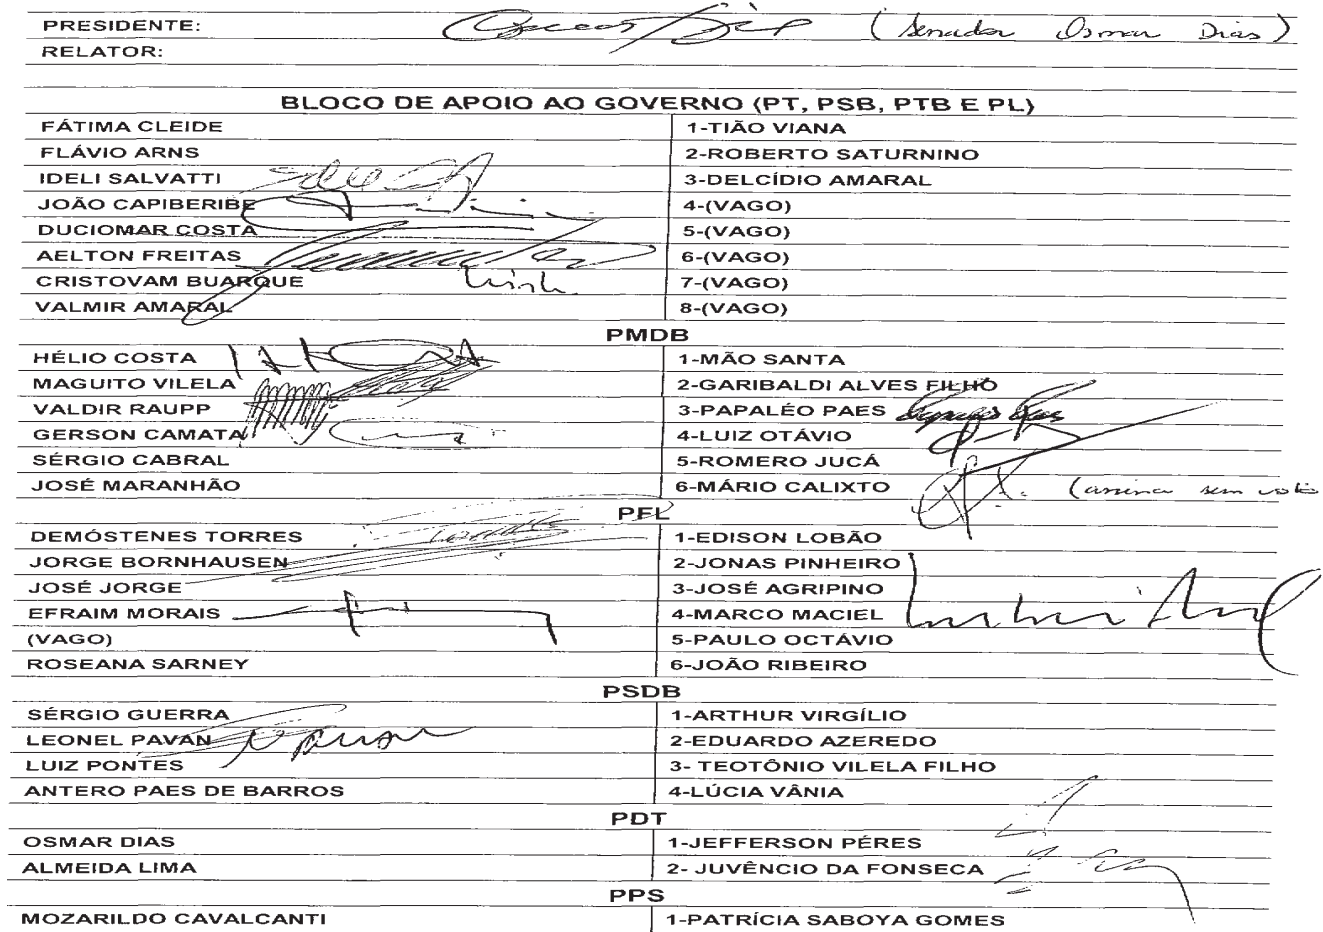 PRESIDENTE: (Senador Osmar Dias)
RELATOR:
BLOCO DE APOIO AO GOVERNO (PT, PSB, PTB E PL)
FÁTIMA CLEIDE 1-TIÃO VIANA
FLÁVIO ARNS 2-ROBERTO SATURNINO
IDELI SALVATTI 3-DELCÍDIO AMARAL
JOÃO CAPIBERIBE 4-(VAGO)
DUCIOMAR COSTA 5-(VAGO)
AELTON FREITAS 6-(VAGO)
CRISTOVAM BUARQUE 7-(VAGO)
VALMIR AMARAL 8-(VAGO)
PMDB
HÉLIO COSTA 1-MÃO SANTA
MAGUITO VILELA 2-GARIBALDI ALVES FILHO
VALDIR RAUPP 3-PAPALÉO PAES
GERSON CAMATA 4-LUIZ OTÁVIO
SÉRGIO CABRAL 5-ROMERO JUCÁ
JOSÉ MARANHÃO 6-MÁRIO CALIXTO (assina sem voto
PFL
DEMÓSTENES TORRES 1-EDISON LOBÃO
JORGE BORNHAUSEN 2-JONAS PINHEIRO
JOSÉ JORGE 3-JOSÉ AGRIPINO
EFRAIM MORAIS 4-MARCO MACIEL
(VAGO) 5-PAULO OCTÁVIO
ROSEANA SARNEY 6-JOÃO RIBEIRO
PSDB
SÉRGIO GUERRA 1-ARTHUR VIRGÍLIO
LEONEL PAVAN 2-EDUARDO AZEREDO
LUIZ PONTES 3- TEOTÔNIO VILELA FILHO
ANTERO PAES DE BARROS 4-LÚCIA VÂNIA
PDT
OSMAR DIAS 1-JEFFERSON PÉRES
ALMEIDA LIMA 2- JUVÊNCIO DA FONSECA
PPS
MOZARILDO CAVALCANTI 1-PATRÍCIA SABOYA GOMES